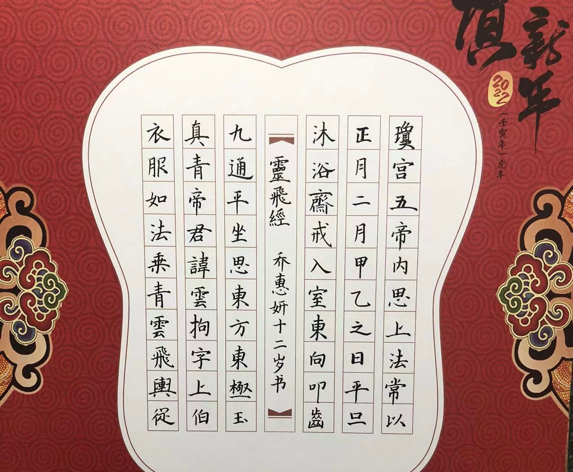 新年
2022
壬寅年·虎年
瓊宫五帝内思上法常以
正月二月甲乙之日平旦
沐浴齋戒入室東向叩齒
靈飛經 乔惠妍十二岁书
九通平坐思東方東極玉
真青帝君諱雲拘字上伯
衣服如法乘青雲飛輿從